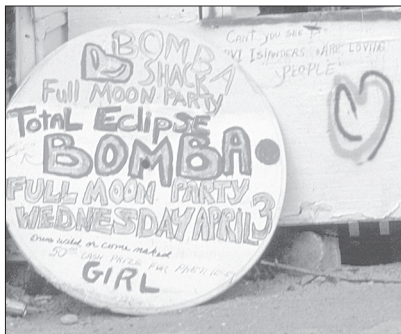 BOMBA
SHACK
Full MOON PARTY
TOTAL EclipSE
BOMBA
FULL MOON PARTY
WEDNESDAY APRIL 3
wild or come naked
50 CASH PRIZE FOR
GIRL
CAN'T YOU SEE
VI ISLANDERS ARE LOVING
PEOPLE